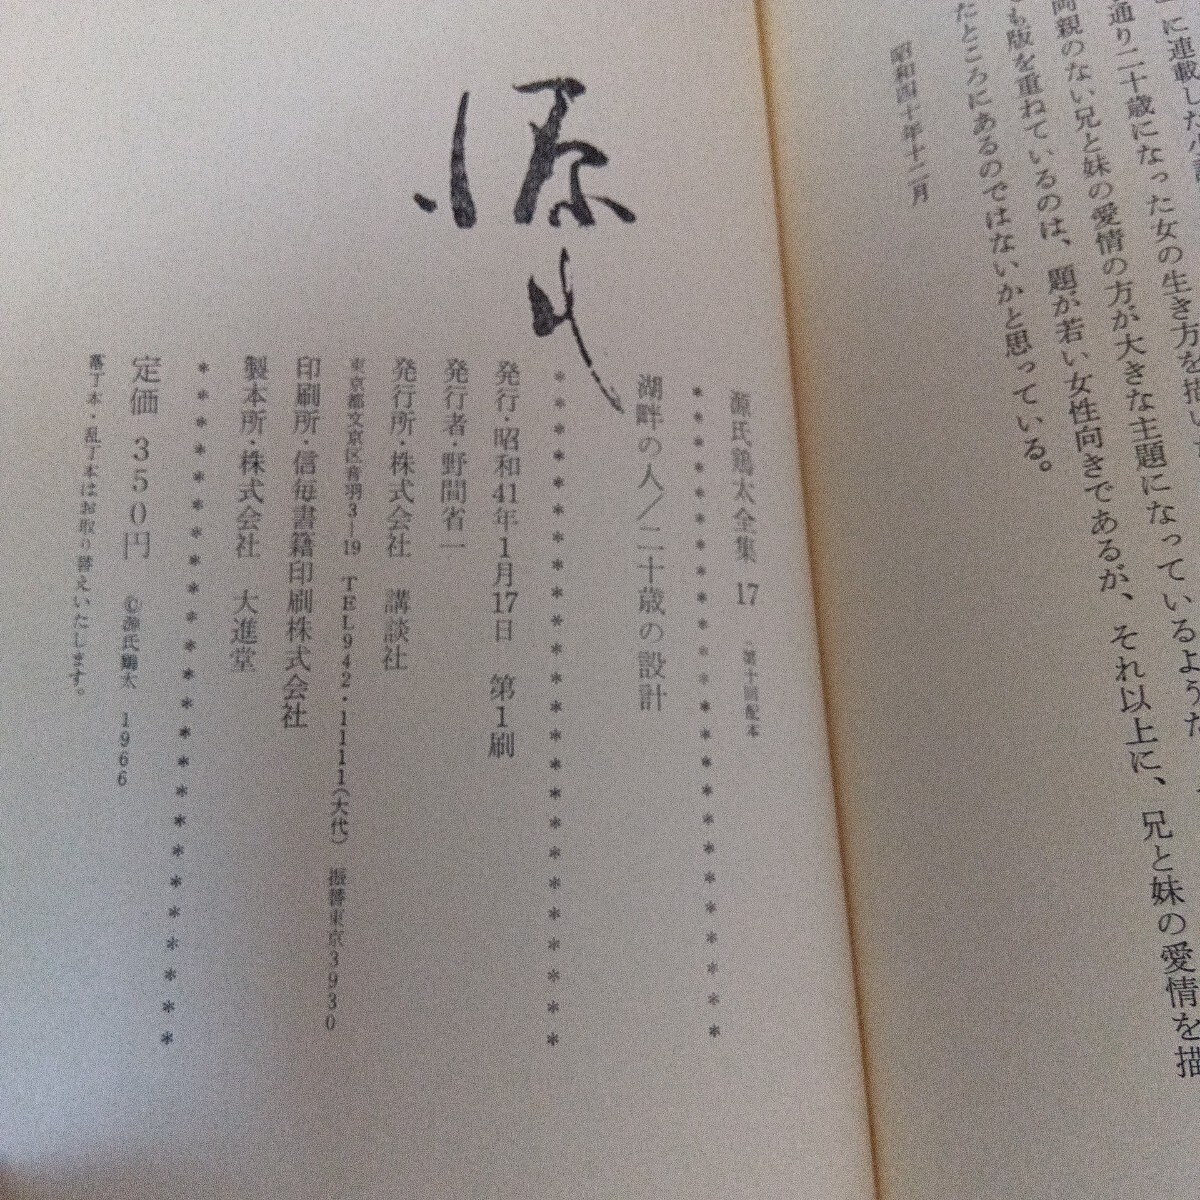 に連載した小説
通り二十歳になった女の生き方を描い
両親のない兄と妹の愛情の方が大きな主題になっているようだ
も版を重ねているのは、題が若い女性向きであるが、それ以上に、兄と妹の愛情を描
たところにあるのではないかと思っている。
昭和四十年十二月
源氏
源氏鶏太全集 17 第十回配本
＊＊＊＊＊＊＊＊＊＊＊＊＊＊＊＊＊＊＊＊＊＊＊＊
湖畔の人／二十歳の設計
＊＊＊＊＊＊＊＊＊＊＊＊＊＊＊＊＊＊＊＊＊＊＊＊
発行・昭和41年1月17日 第1刷
発行者・野間省一
発行所・株式会社 講談社
東京都文京区音羽3—19 TEL942・1111(大代) 振替東京3930
印刷所・信毎書籍印刷株式会社
製本所・株式会社 大進堂
＊＊＊＊＊＊＊＊＊＊＊＊＊＊＊＊＊＊＊＊＊＊＊＊
定価 350円 ©源氏鶏太 1966
落丁本・乱丁本はお取り替えいたします。